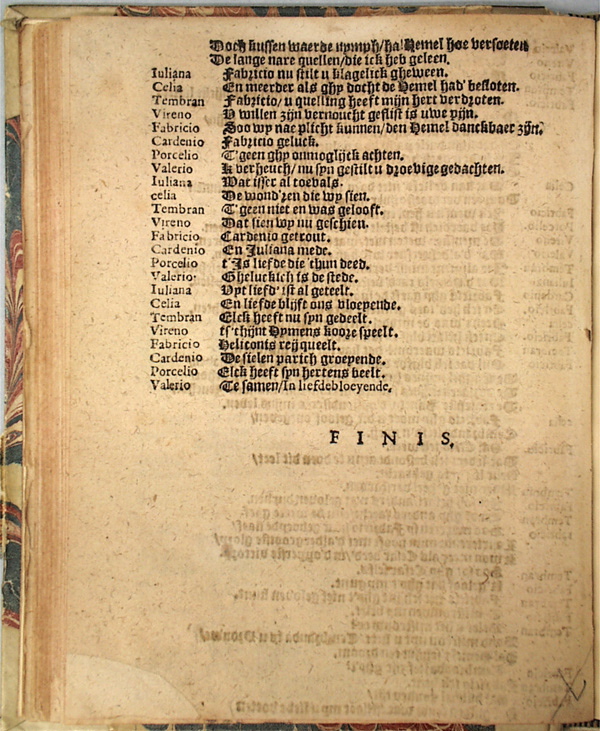 Doch kussen waerde nymph/ha! Hemel hoe versoeten
De lange nare quellen/die ick heb geleen.
Iuliana Fabricio nu stilt u klagelick gheween.
Celia En meerder als ghy docht de Hemel had' besloten.
Tembran Fabritio/u quelling heeft mijn hert verdroten.
Vireno V willen zijn vernoucht geslist is uwe pijn.
Fabricio Soo wy nae plicht kunnen/den Hemel danckbaer zijn.
Cardenio Fabricio geluck.
Porcelio T'geen ghy onmoglijck achten.
Valerio K verheuch/nu syn gestilt u droevige gedachten.
Iuliana Wat isser al toevals.
celia De wond'ren die wy sien.
Tembran T'geen niet en was gelooft.
Vireno Dat sien wy nu geschien.
Fabricio Cardenio getrout.
Cardenio En Juliana mede.
Porcelio t'Is liefde die 'thun deed.
Valerio. Gheluckich is de stede.
Iuliana Uyt liefd' ist al geteelt.
Celia En liefde blijft ons bloepende.
Tembran Elck heeft nu syn gedeelt.
Vireno ts'thijnt Hymens koore speelt.
Fabricio Heliconis reij queelt.
Cardenio De sielen parich groepende.
Porcelio Elck heeft syn hertens beelt.
Valerio Te samen/In liefdebloeyende.
FINIS.